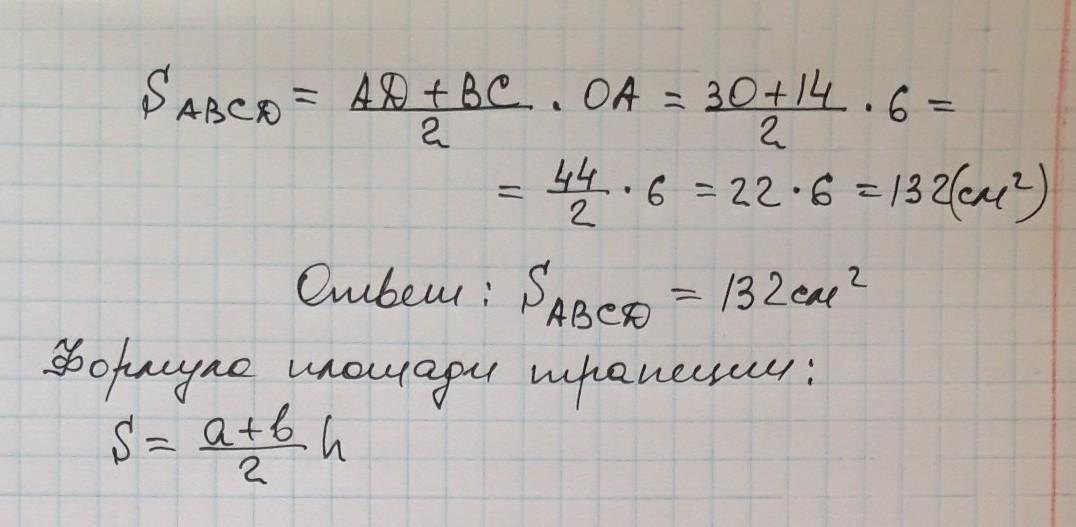 S_ABCD = (AD + BC)/2 · OA = (30+14)/2 · 6 =
= 44/2 · 6 = 22 · 6 = 132(см²)
Ответ: S_ABCD = 132см²
Формула площади трапеции:
S = (a+b)/2 h